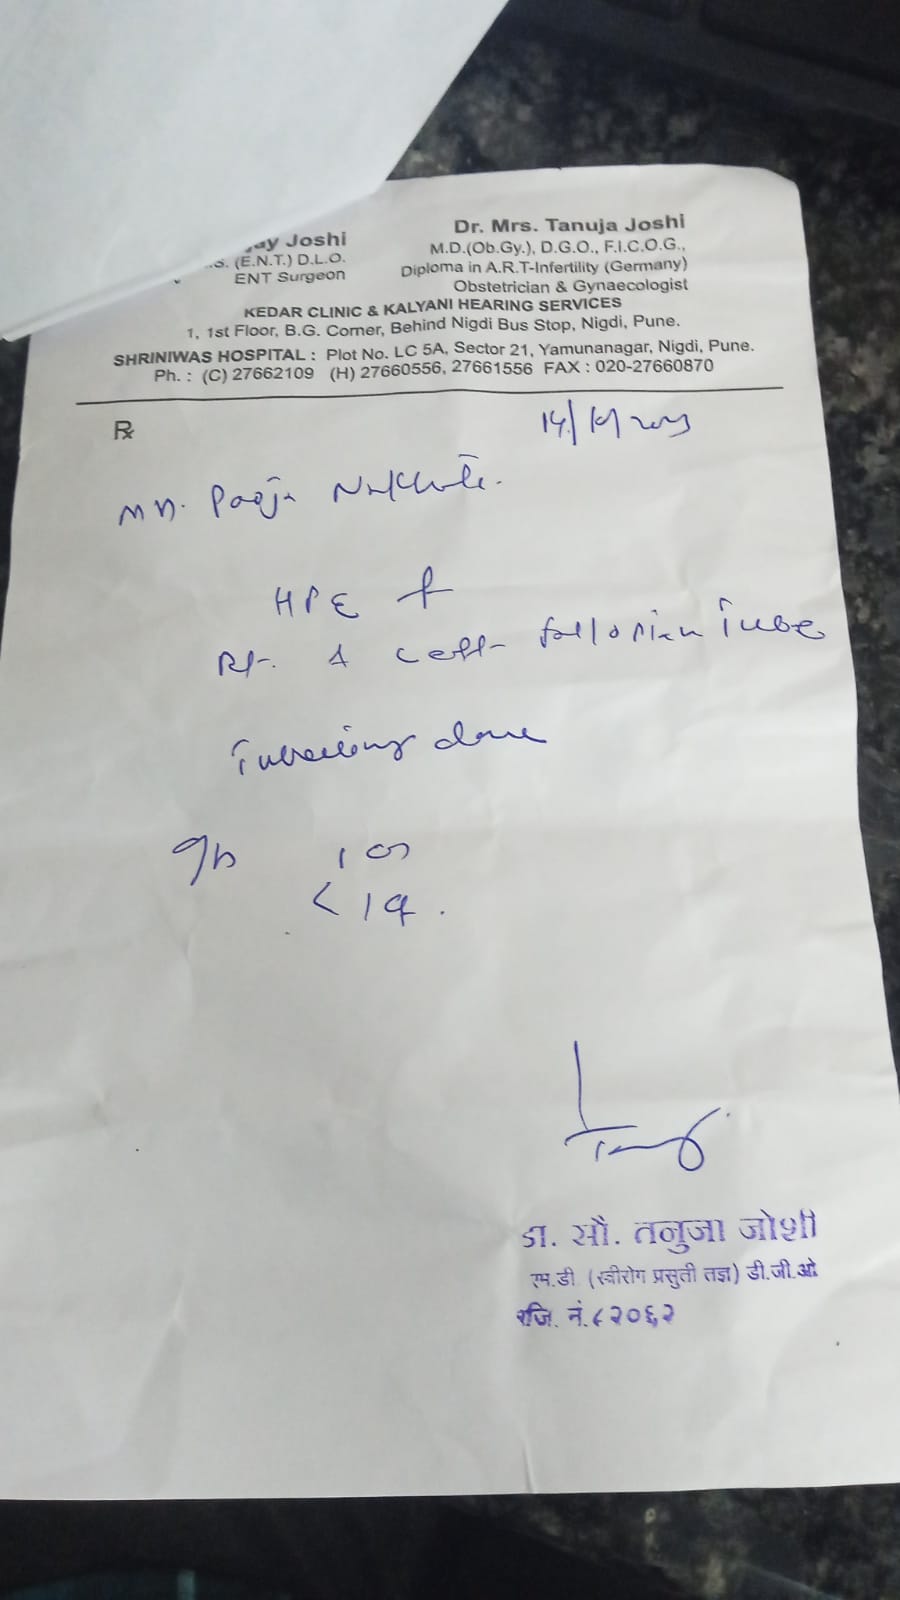 Joshi
(E.N.T.) D.L.O.
ENT Surgeon
Dr. Mrs. Tanuja Joshi
M.D.(Ob.Gy.), D.G.O., F.I.C.O.G.,
Diploma in A.R.T-Infertility (Germany)
Obstetrician & Gynaecologist
KEDAR CLINIC & KALYANI HEARING SERVICES
1, 1st Floor, B.G. Corner, Behind Nigdi Bus Stop, Nigdi, Pune.
SHRINIWAS HOSPITAL : Plot No. LC 5A, Sector 21, Yamunanagar, Nigdi, Pune.
Ph. : (C) 27662109 (H) 27660556, 27661556 FAX : 020-27660870
℞
Pooja
HPE
Rt. fallopian Tube
done
डा. सौ. तनुजा जोशी
एम.डी. (स्त्रीरोग प्रसुती तज्ञ) डी.जी.ओ.
रजि. नं. ८२०६२